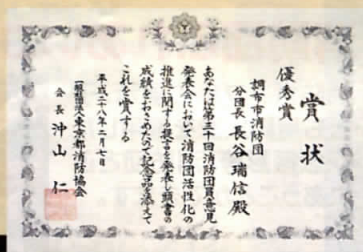 賞状
優秀賞
調布市消防団
分団長 長谷瑞信殿
あなたは第三十回消防団員意見
発表会において消防団活性化の
推進に関する提言を発表し頭書の
成績をおさめたので記念品を添えて
これを賞する
平成二十八年二月七日
一般財団法人東京都消防協会
会長 沖山 仁